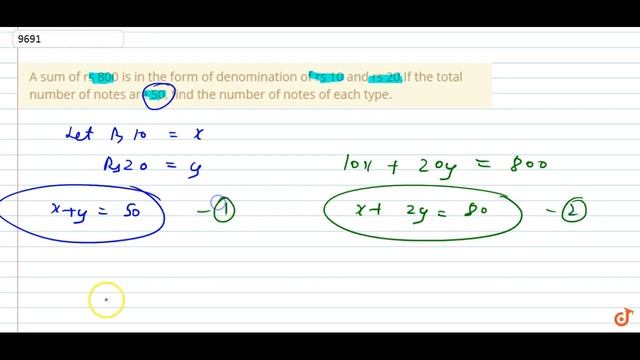 9691
A sum of rs 800 is in the form of denomination of rs 10 and rs 20.If the total
number of notes are 50, find the number of notes of each type.
Let Rs 10 = x
Rs 20 = y
10x + 20y = 800
x+y = 50 - 1
x+ 2y = 80 - 2